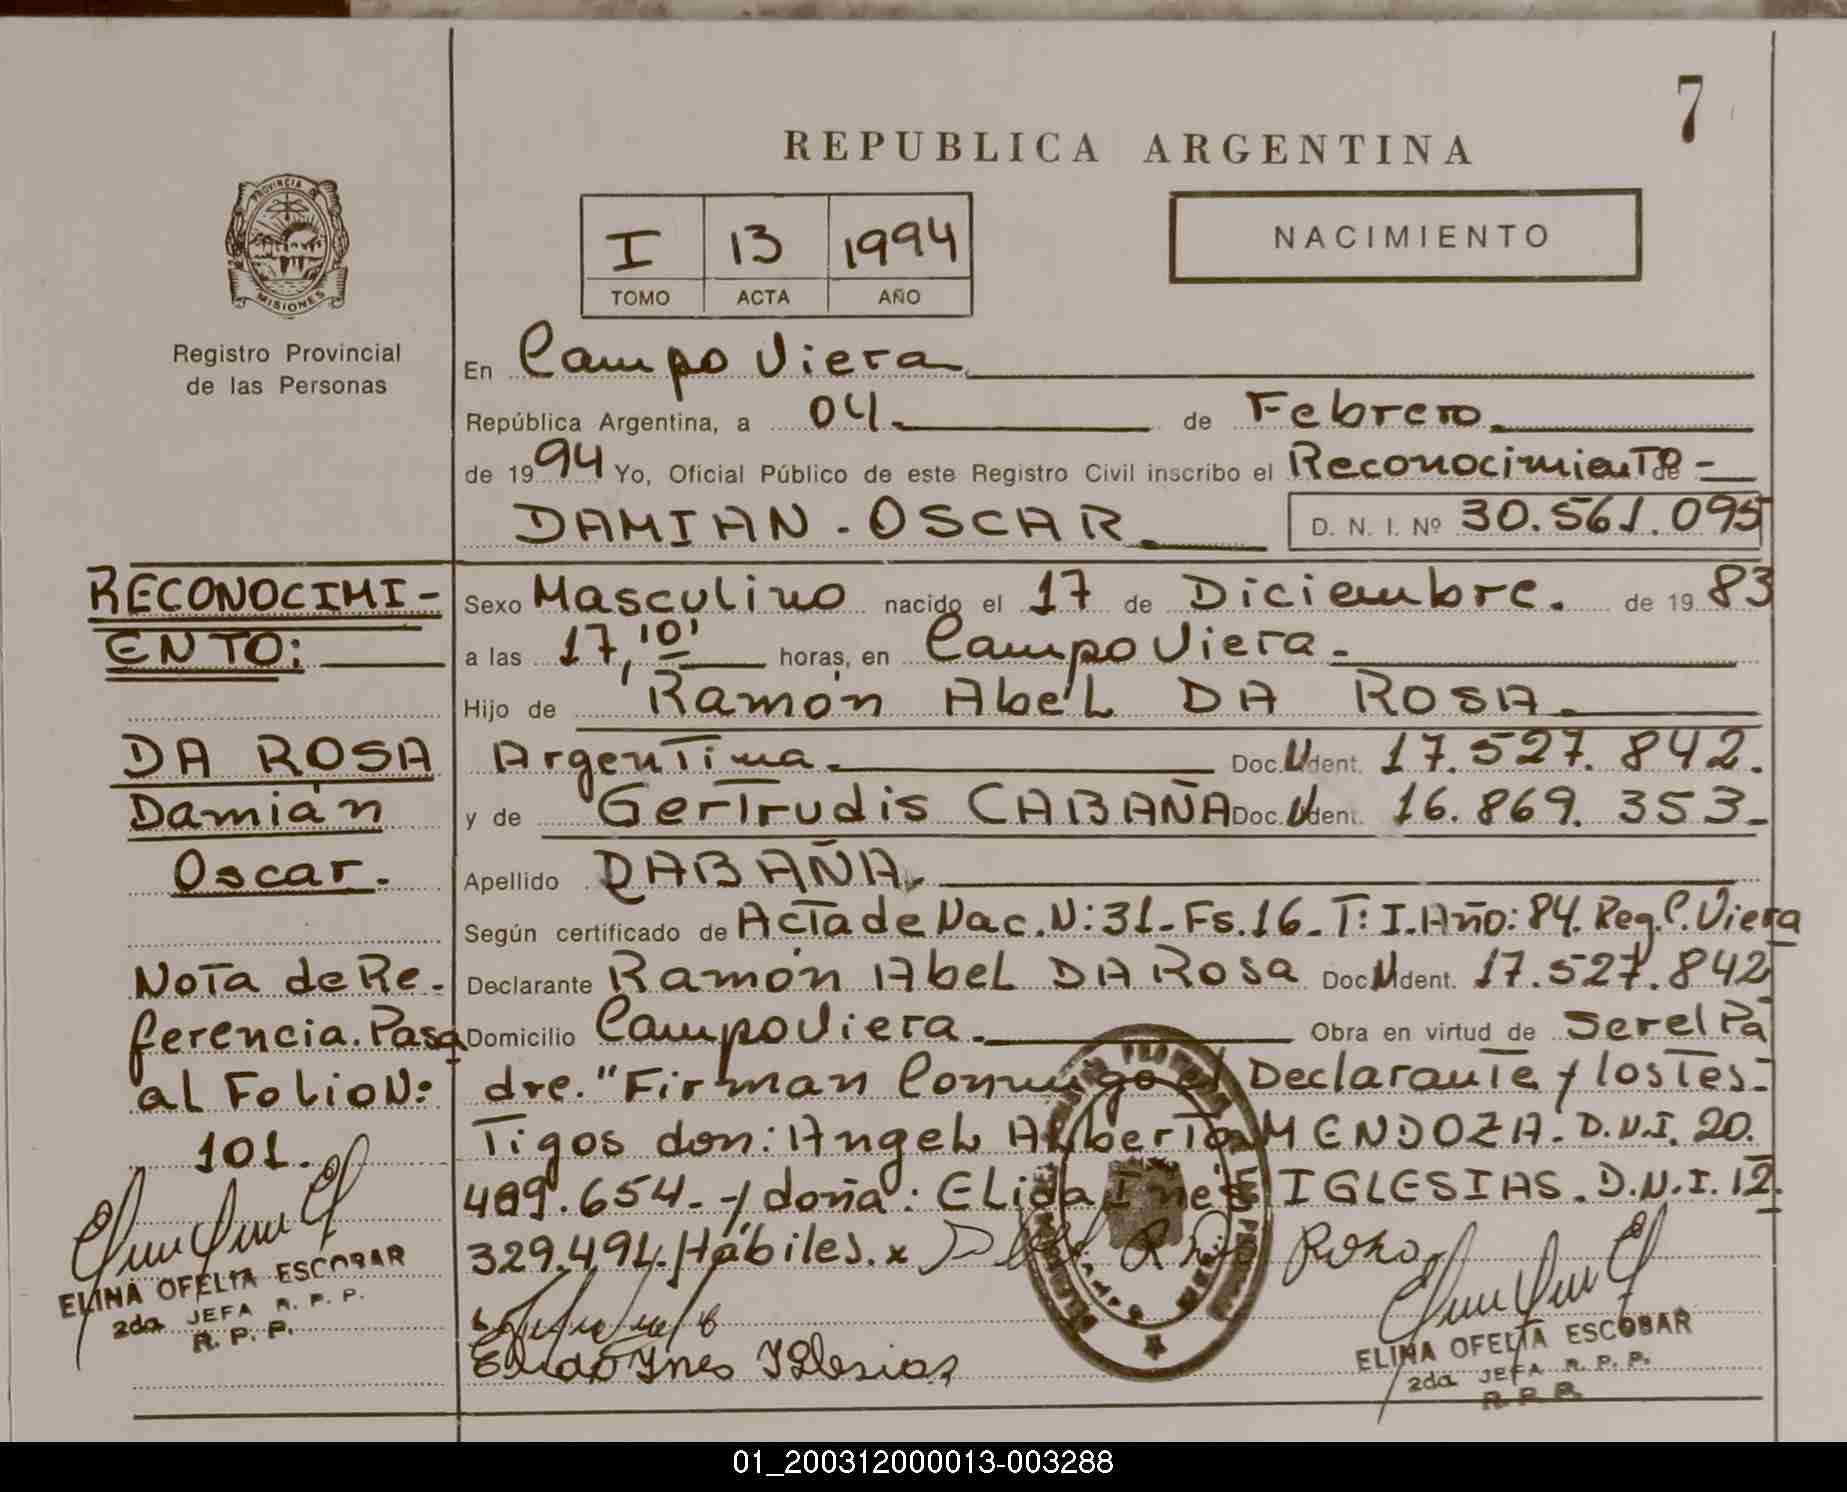 7
REPUBLICA ARGENTINA
NACIMIENTO
I 13 1994
TOMO ACTA AÑO
PROVINCIA DE
MISIONES
Registro Provincial
de las Personas
En Campo Viera
República Argentina, a 04 de Febrero
de 1994 Yo, Oficial Público de este Registro Civil inscribo el Reconocimiento -
DAMIAN - OSCAR D. N. I. Nº 30.561.095
Sexo Masculino nacido el 17 de Diciembre. de 1983
a las 17,10' horas, en Campo Viera -
Hijo de Ramón Abel DA ROSA
Argentina Doc. Ident. 17.527.842.
y de Gertrudis CABAÑA Doc. Ident. 16.869.353-
Apellido CABAÑA
Según certificado de Acta de Nac. N: 31- Fs. 16- T: I. Año: 84. Reg. C. Viera
Declarante Ramón Abel DA Rosa Doc. Ident. 17.527.842
Domicilio Campo Viera. Obra en virtud de Ser el Pa
dre. "Firman Conmigo el Declarante y los Tes-
Tigos don: Angel Alberto MENDOZA. D.N.I. 20.
489.654.- y doña: Elida Inés IGLESIAS. D.N.I. 12.
329.494. Hábiles. x
Elida Ynes Yglesias
ELINA OFELIA ESCOBAR
2da JEFA R. P. P.
R. P. P.
RECONOCIMI-
ENTO:
DA ROSA
Damián
Oscar.
Nota de Re-
ferencia. Pasa
al Folio N:
101.
ELINA OFELIA ESCOBAR
2da JEFA R. P. P.
R. P. P.
01_200312000013-003288